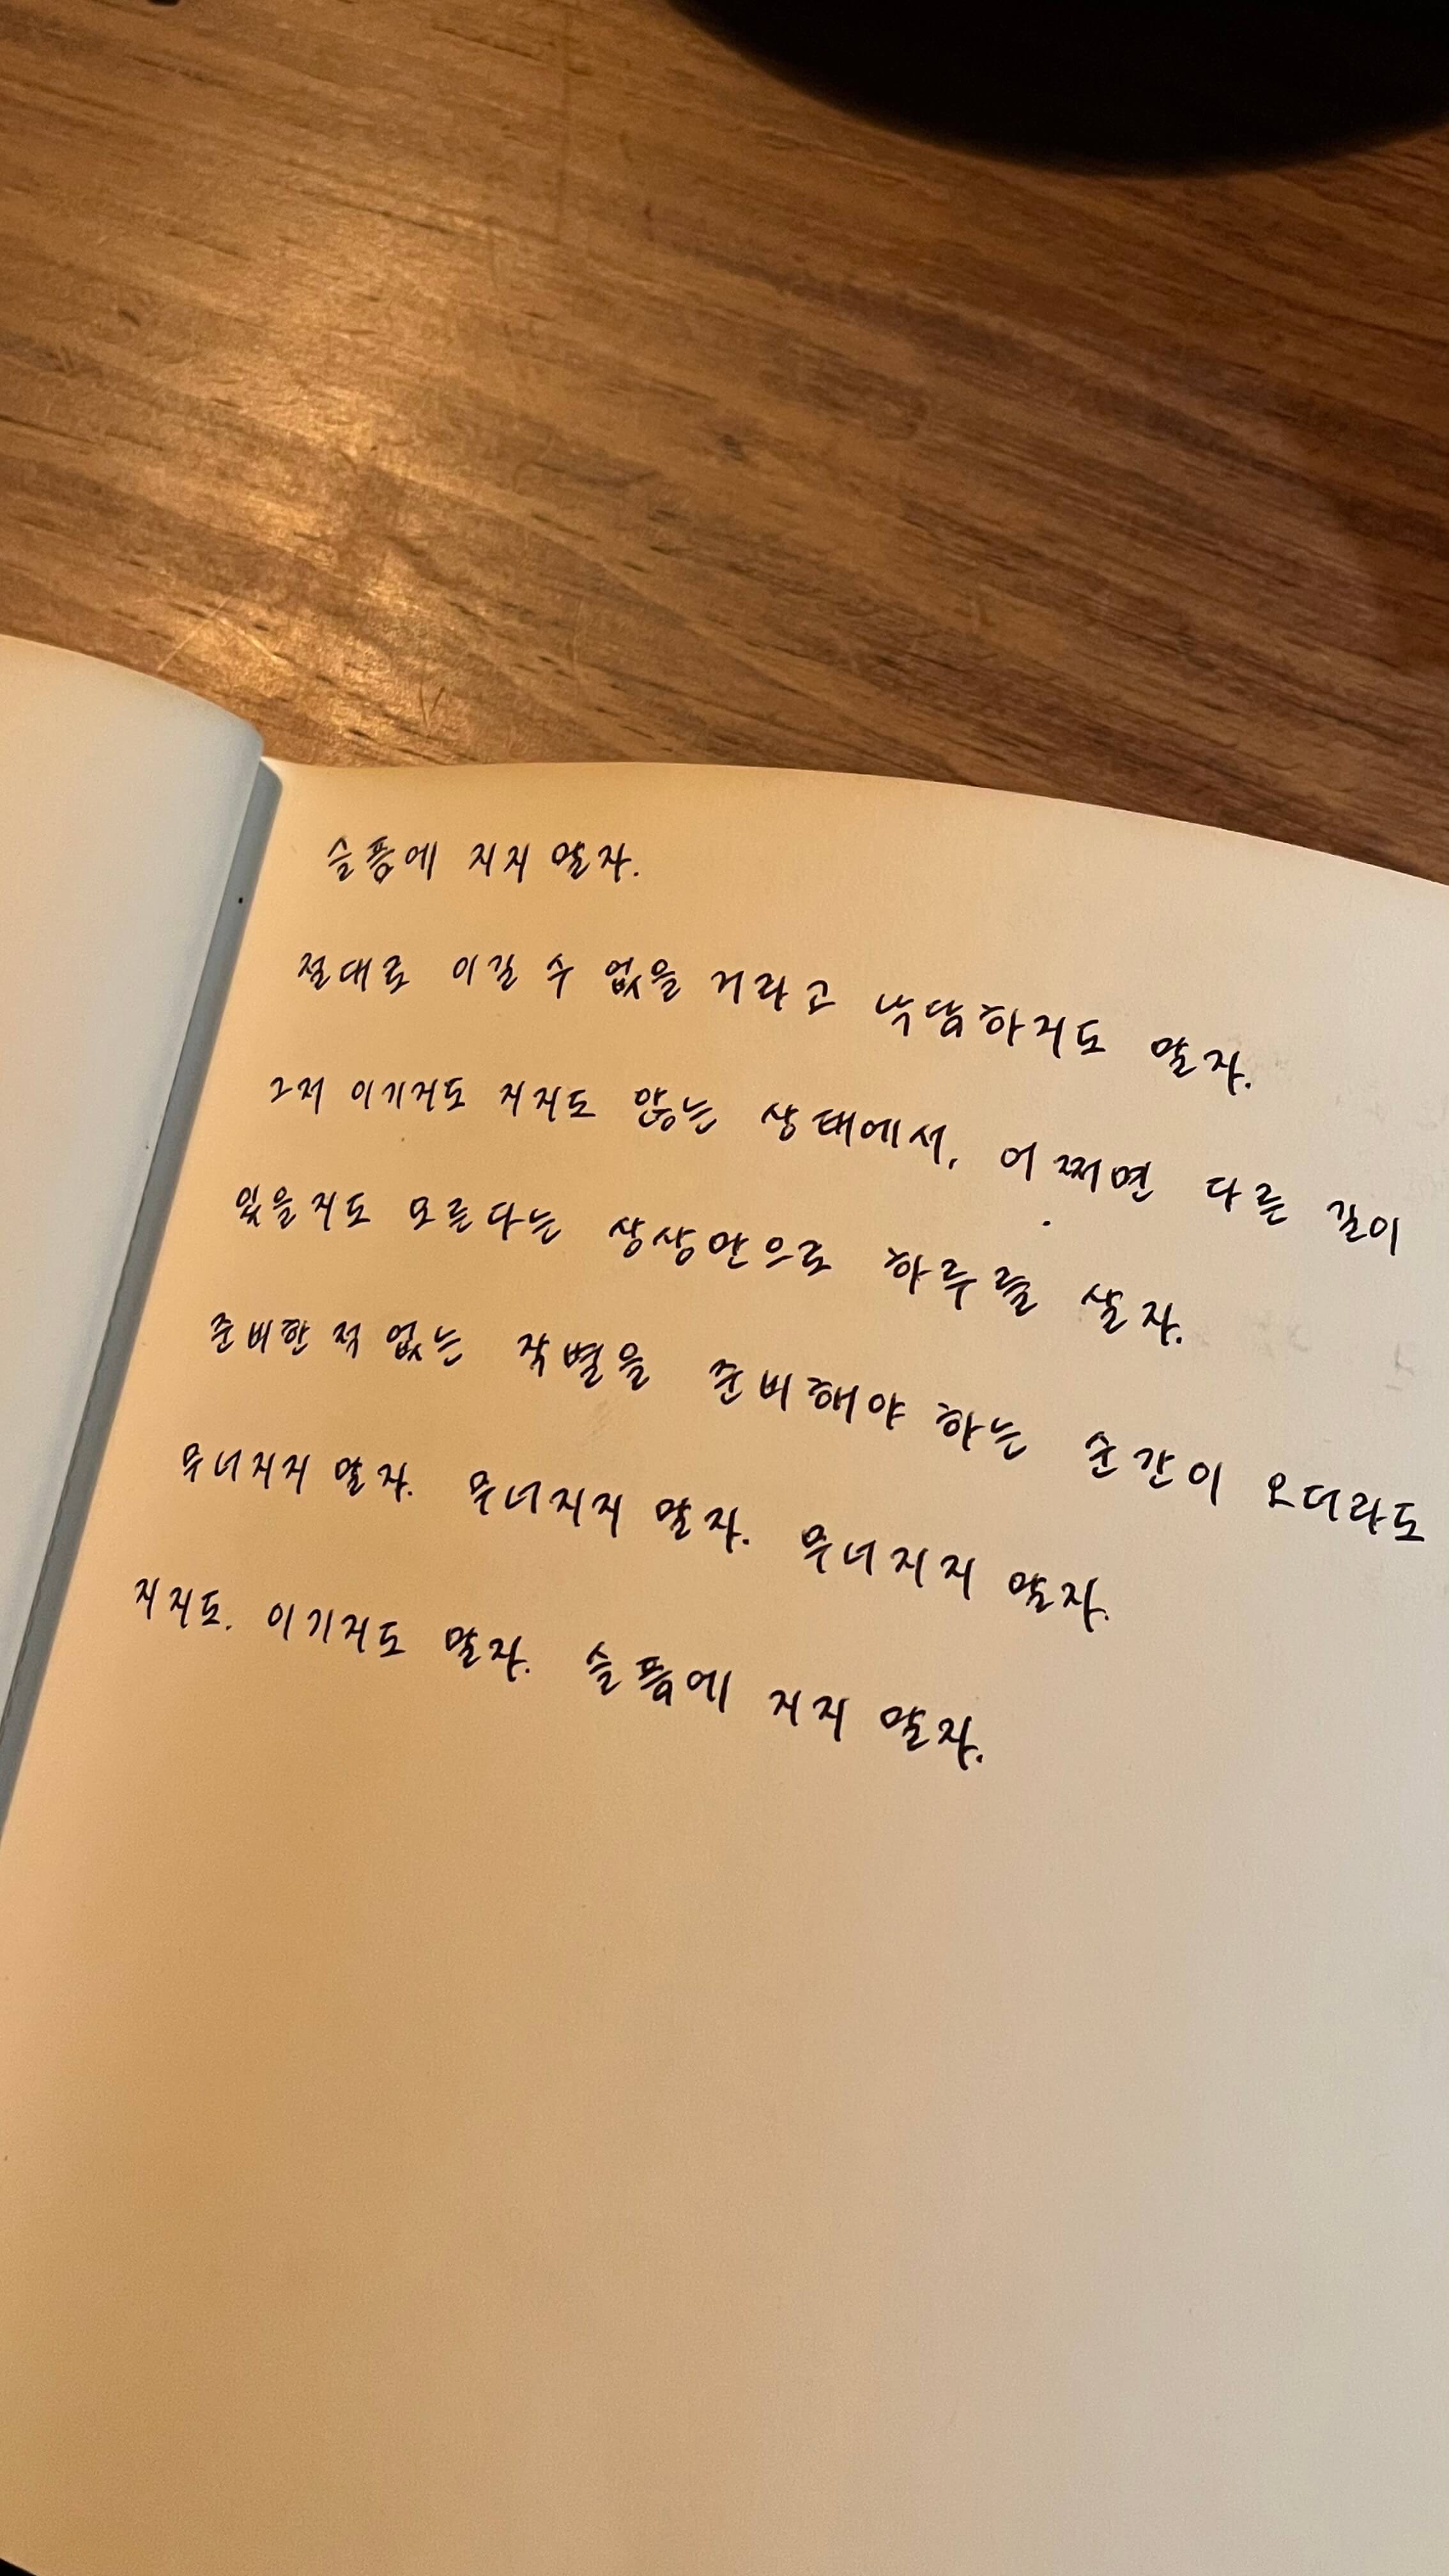 슬픔에 지지 말자.
절대로 이길 수 없을 거라고 낙담하지도 말자.
그저 이기지도 지지도 않는 상태에서, 어쩌면 다른 길이
있을지도 모른다는 상상만으로 하루를 살자.
준비한 적 없는 작별을 준비해야 하는 순간이 오더라도
무너지지 말자. 무너지지 말자. 무너지지 말자.
지지도. 이기지도 말자. 슬픔에 지지 말자.